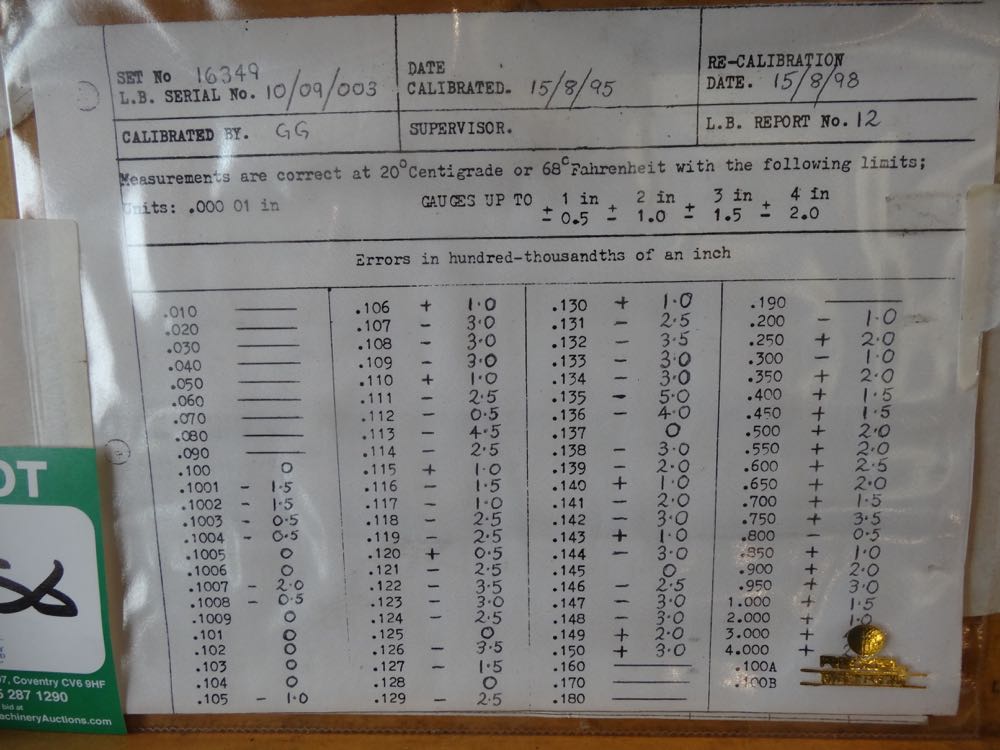 SET No 16349
L.B. SERIAL No. 10/09/003
DATE
CALIBRATED. 15/8/95
RE-CALIBRATION
DATE. 15/8/98
CALIBRATED BY. GG
SUPERVISOR.
L.B. REPORT No. 12
Measurements are correct at 20° Centigrade or 68° Fahrenheit with the following limits;
Units: .000 01 in GAUGES UP TO 1 in 2 in 3 in 4 in
± 0.5 ± 1.0 ± 1.5 ± 2.0
Errors in hundred-thousandths of an inch
.010 ——
.020 ——
.030 ——
.040 ——
.050 ——
.060 ——
.070 ——
.080 ——
.090 ——
.100 0
.1001 - 1.5
.1002 - 1.5
.1003 - 0.5
.1004 - 0.5
.1005 0
.1006 0
.1007 - 2.0
.1008 - 0.5
.1009 0
.101 0
.102 0
.103 0
.104 0
.105 - 1.0
.106 + 1.0
.107 - 3.0
.108 - 3.0
.109 - 3.0
.110 + 1.0
.111 - 2.5
.112 - 0.5
.113 - 4.5
.114 - 2.5
.115 + 1.0
.116 - 1.5
.117 - 1.0
.118 - 2.5
.119 - 2.5
.120 + 0.5
.121 - 2.5
.122 - 3.5
.123 - 3.0
.124 - 2.5
.125 0
.126 - 3.5
.127 - 1.5
.128 0
.129 - 2.5
.130 + 1.0
.131 - 2.5
.132 - 3.5
.133 - 3.0
.134 - 3.0
.135 - 5.0
.136 - 4.0
.137 0
.138 - 3.0
.139 - 2.0
.140 + 1.0
.141 - 2.0
.142 - 3.0
.143 + 1.0
.144 - 3.0
.145 0
.146 - 2.5
.147 - 3.0
.148 - 3.0
.149 + 2.0
.150 + 3.0
.160 ——
.170 ——
.180 ——
.190 ——
.200 - 1.0
.250 + 2.0
.300 - 1.0
.350 + 2.0
.400 + 1.5
.450 + 1.5
.500 + 2.0
.550 + 2.0
.600 + 2.5
.650 + 2.0
.700 + 1.5
.750 + 3.5
.800 - 0.5
.850 + 1.0
.900 + 2.0
.950 + 3.0
1.000 + 1.5
2.000 + 1.0
3.000 +
4.000 +
.100A
.100B
OT
7, Coventry CV6 9HF
287 1290
bid at
achineryAuctions.com